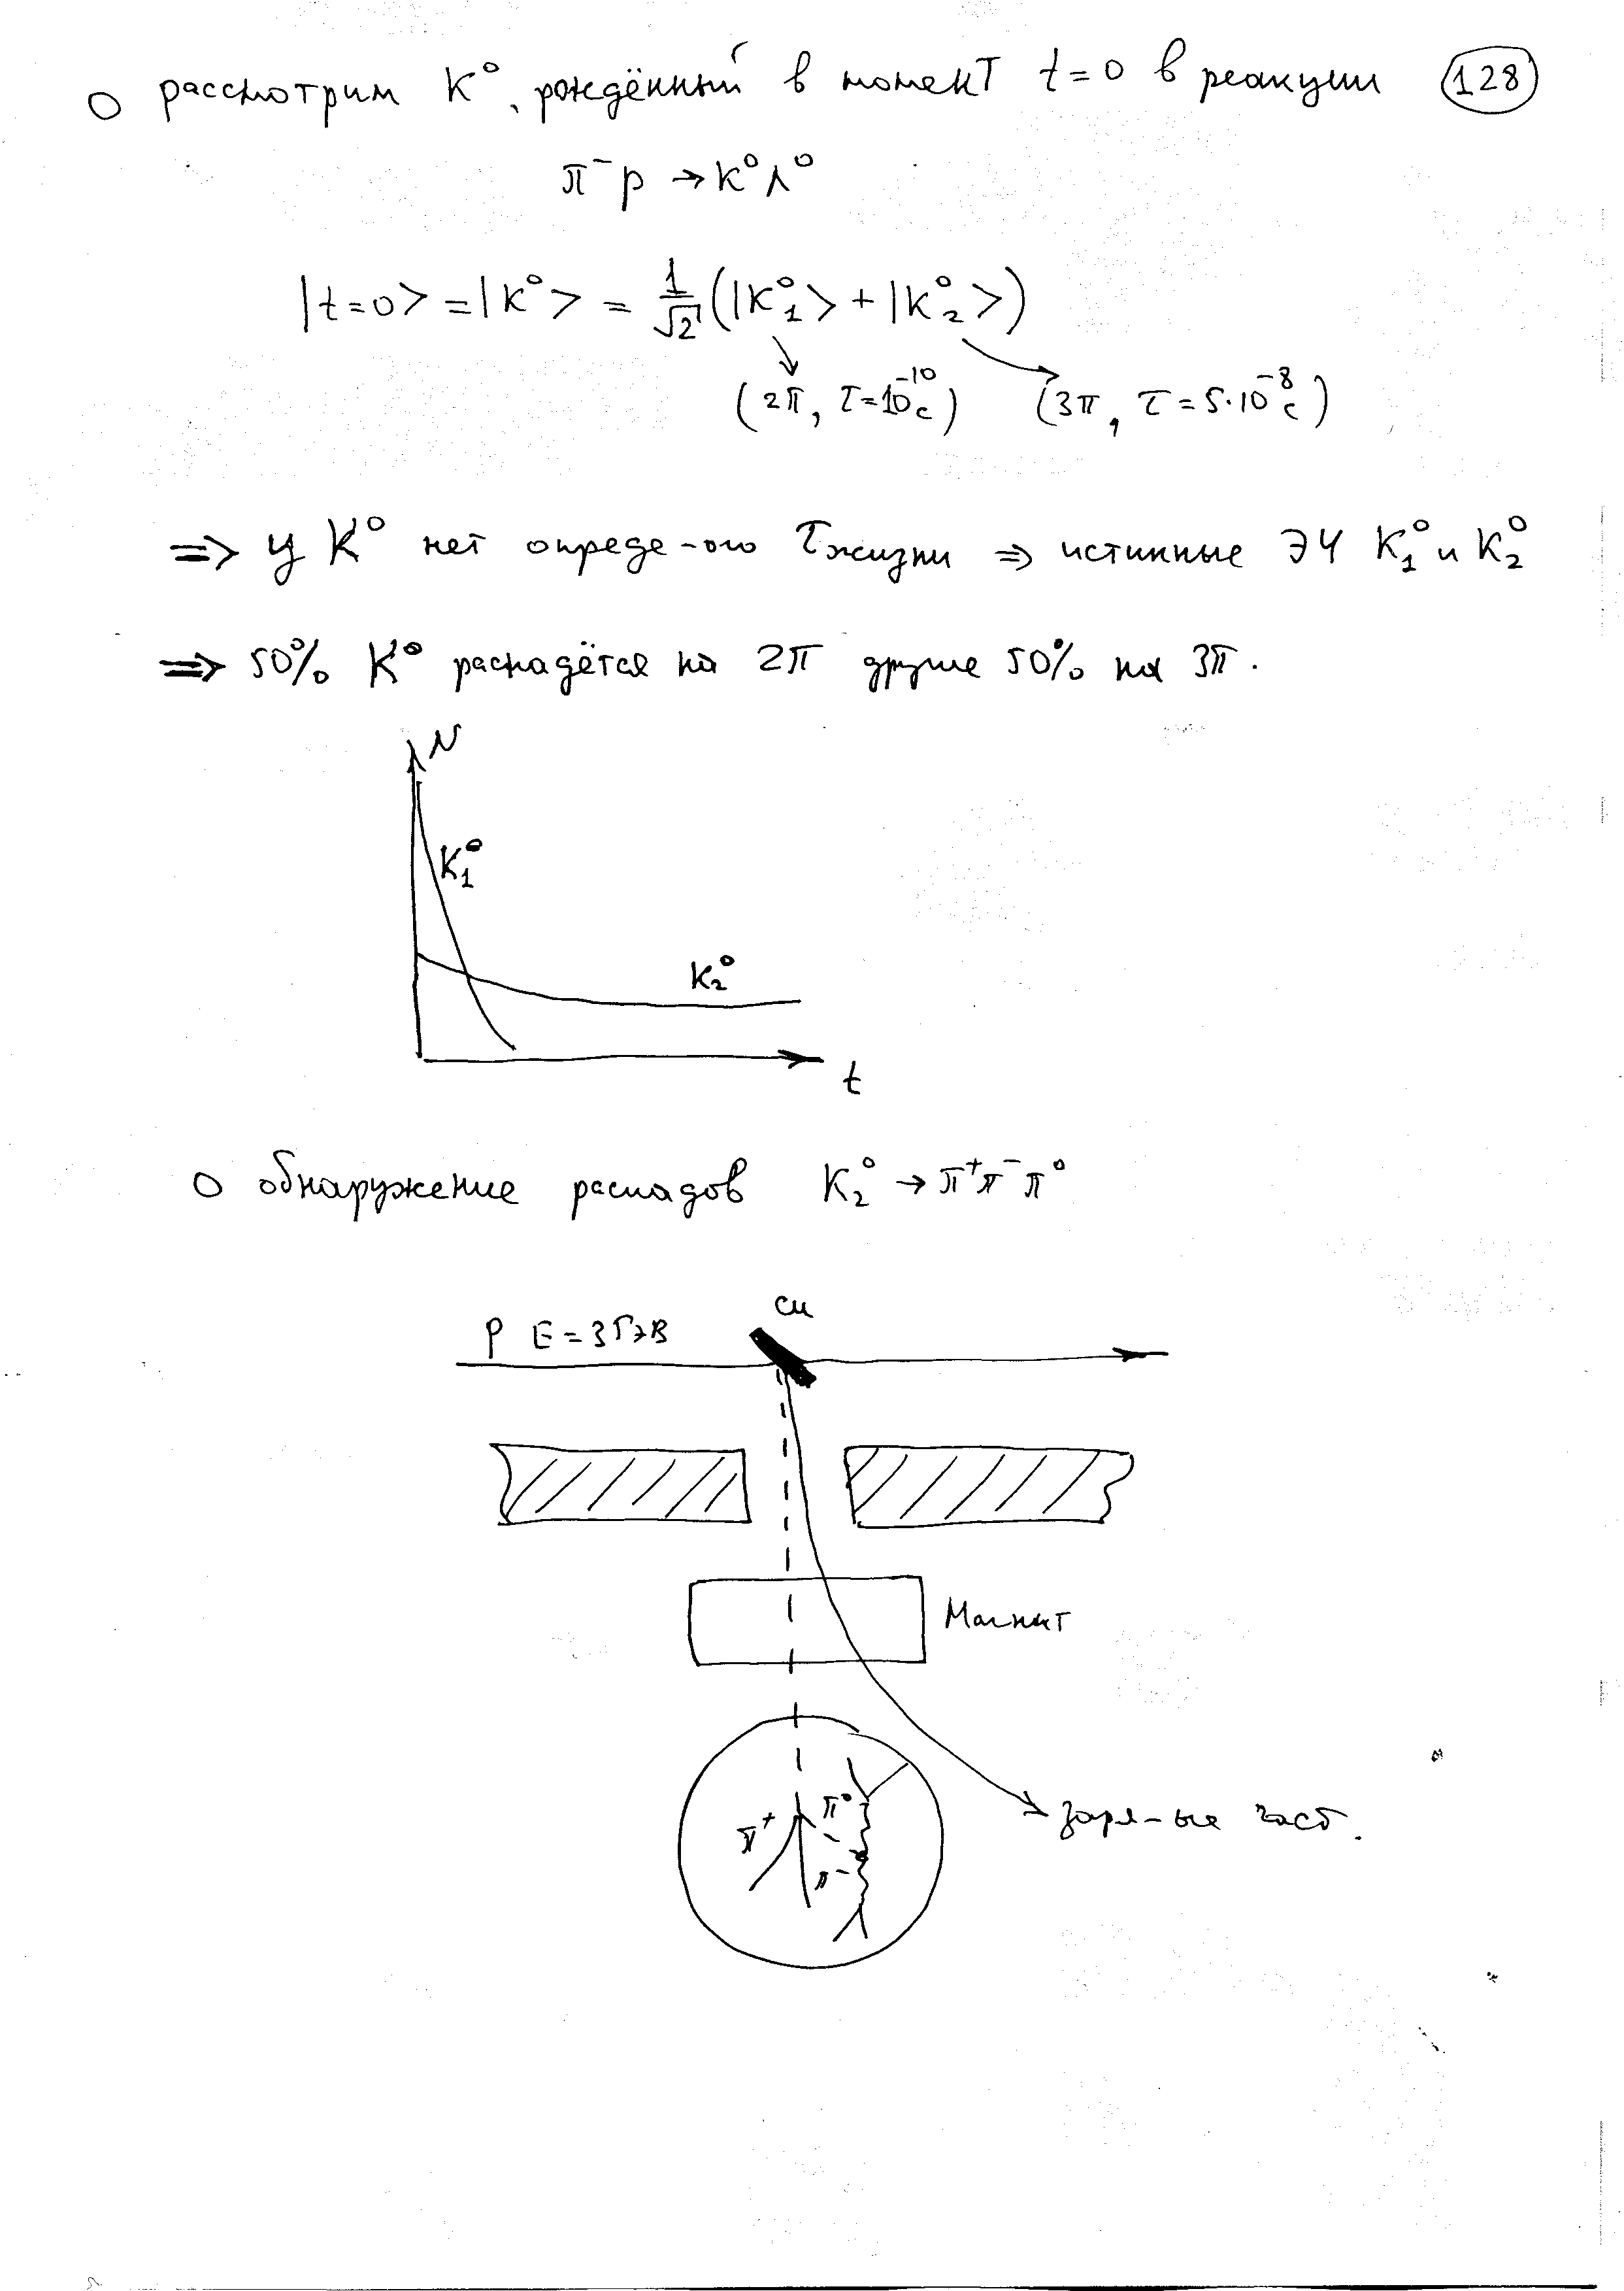 о рассмотрим K⁰, рождённый в момент t=0 в реакции (128)
π⁻p → K⁰Λ⁰
|t=0> = |K⁰> = 1/√2 (|K⁰₁> + |K⁰₂>)
(2π, τ=10⁻¹⁰с) (3π, τ=5·10⁻⁸с)
⇒ у K⁰ нет опреде-ого τжизни ⇒ истинные ЭЧ K₁⁰ и K₂⁰
⇒ 50% K⁰ распадётся на 2π другие 50% на 3π.
N
K₁⁰
K₂⁰
t
о обнаружение распадов K₂⁰ → π⁺π⁻π⁰
Cu
p E=3ГэВ
Магнит
π⁰
π⁺
π⁻
заря-ые част.